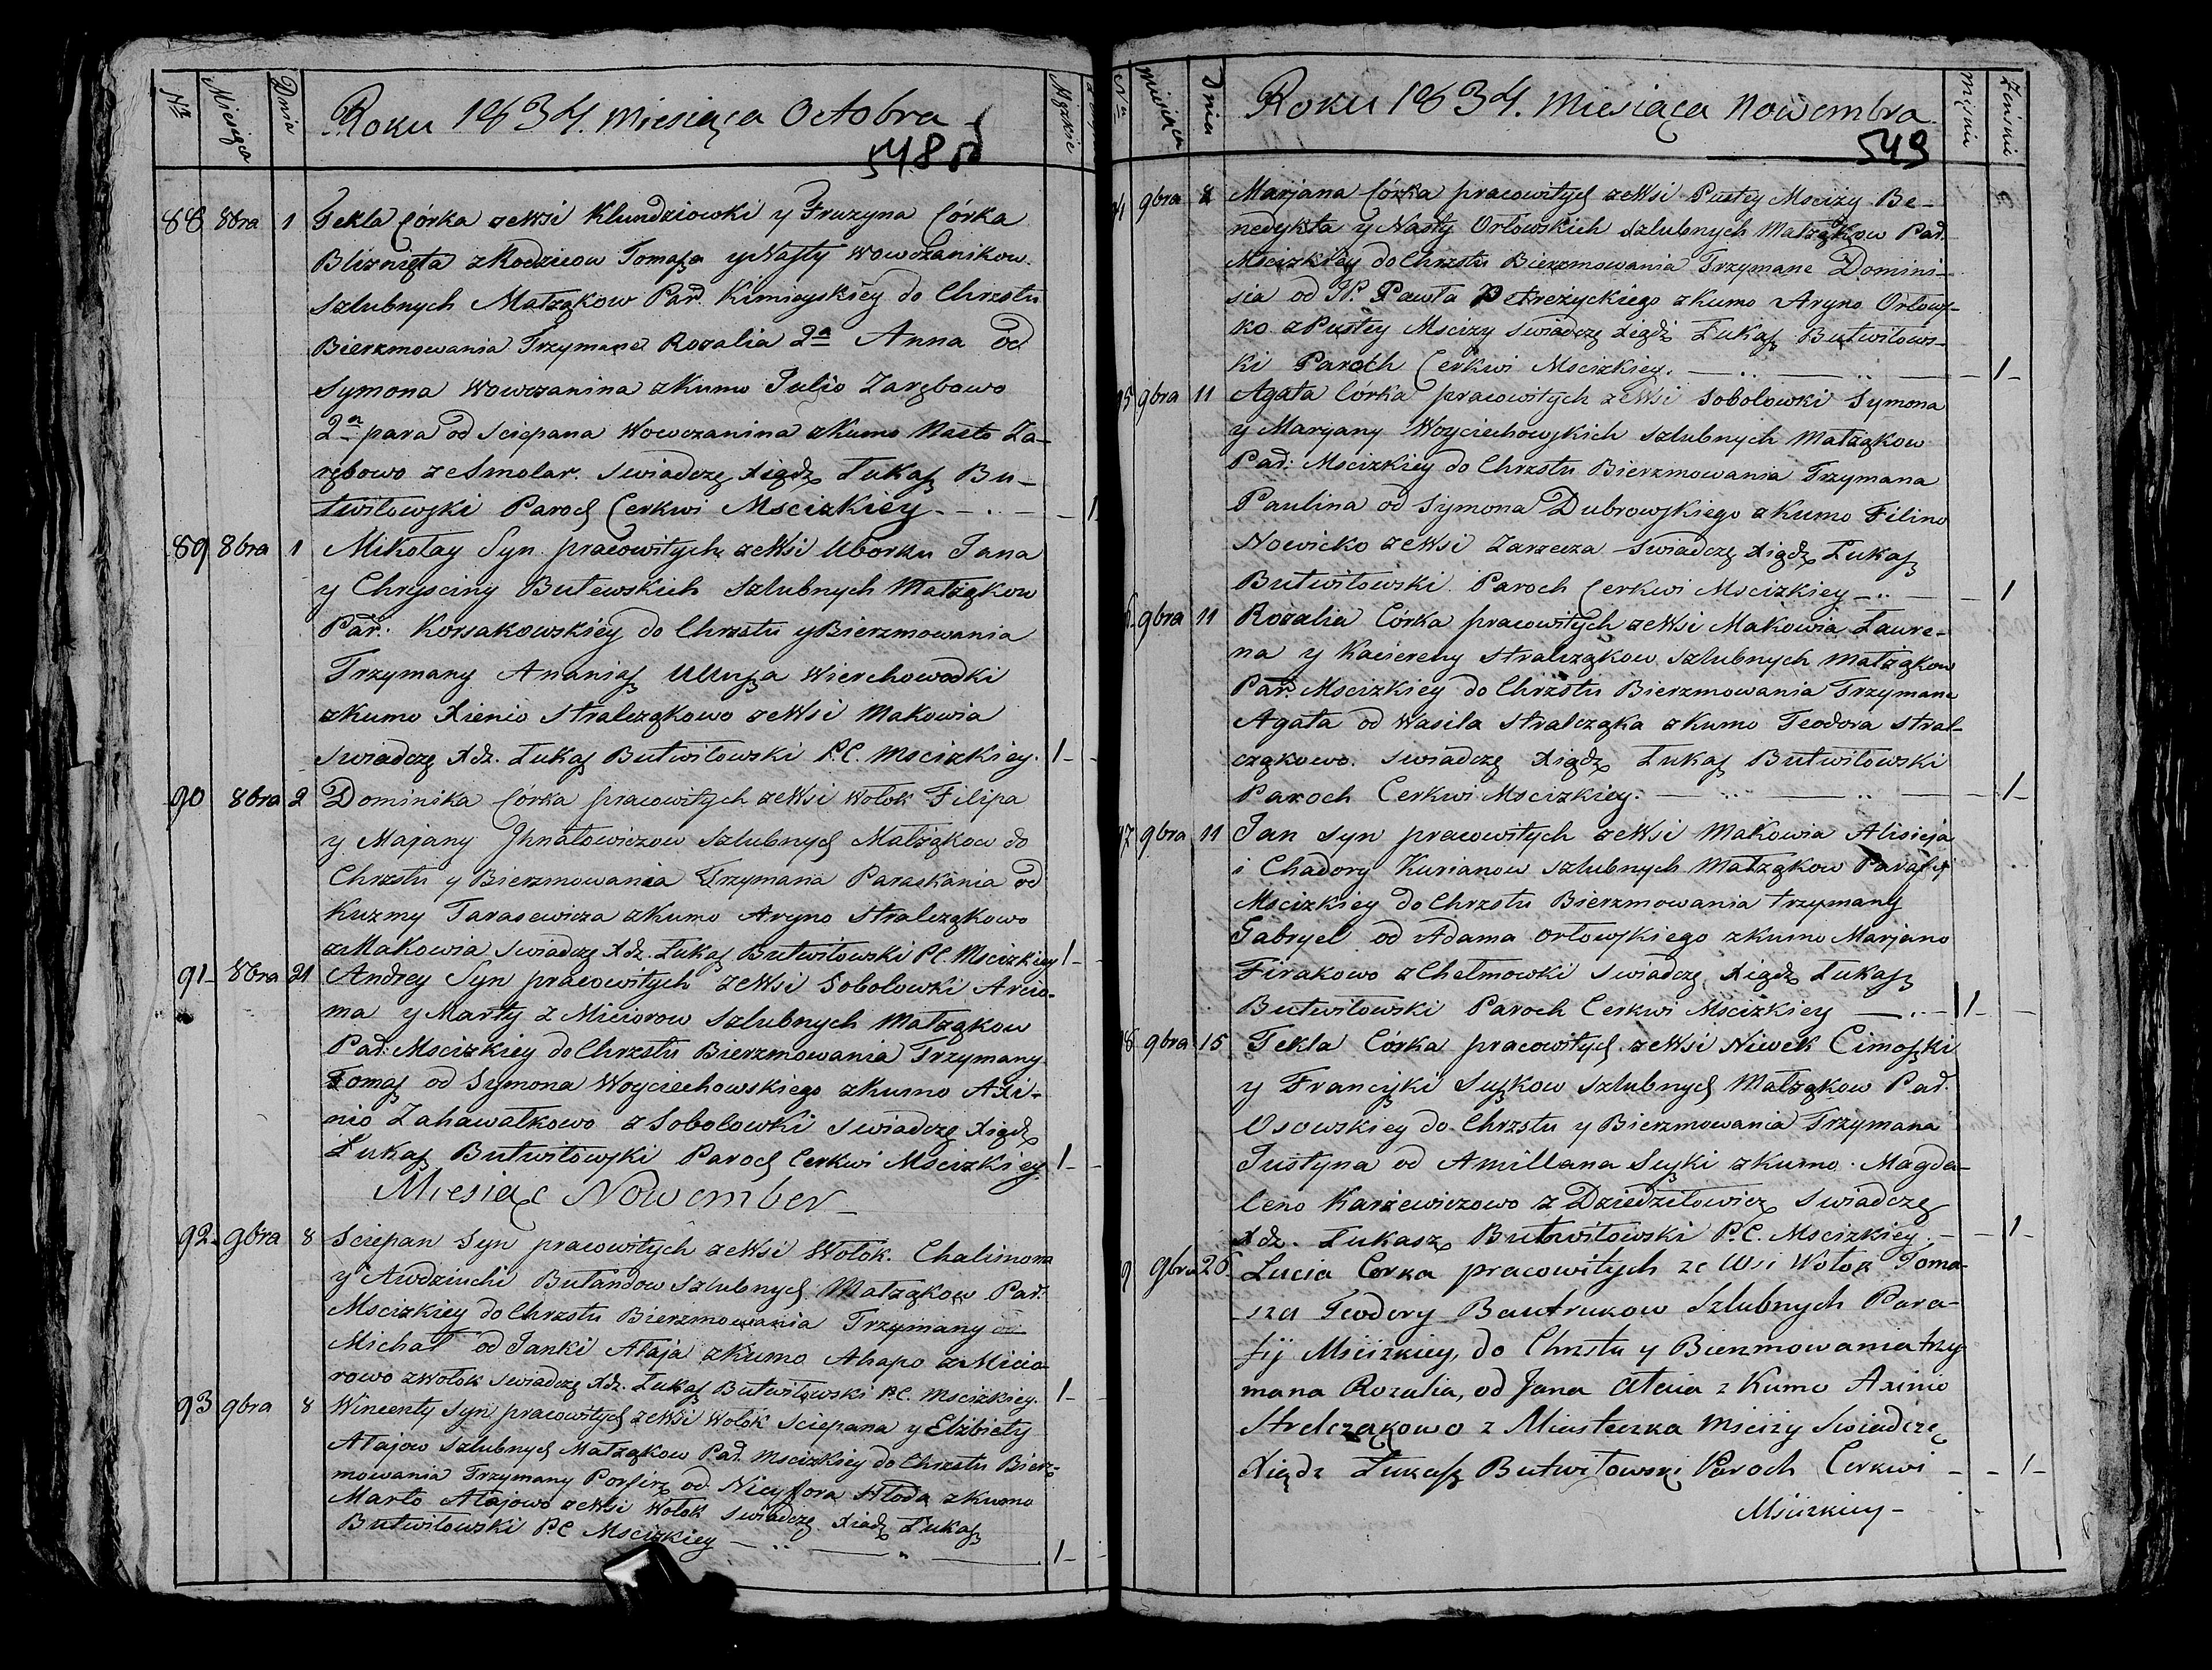 Nro Miesiąca Dnia Roku 1834. Miesiąca Octobra Męzkie
548 od
88 8bra 1 Tekla Córka zeWsi Klundziowki y Fruzyna Córka
Bliznięta zRodzicow Tomaſza yNaſty Wowczanikow
szlubnych Małżąkow Par. Kimieyskiéy do Chrzstu
Bierzmowania Trzymane Rozalia 2a Anna od
Symona Wowczanina zKumo Julio Zarębowo
2a para od Sciepana Wowczanina zKumo Nasto Za-
rębowo zeSmolar. Swiadczę Xiądz Łukaſz Bu-
twiłowſki Paroch Cerkwi Mscizkiéy 1
89 8bra 1 Mikołay Syn pracowitych zeWsi Uborku Jana
y Chryſciny Butewskich szlubnych Małżąkow
Par. Korsakowskiéy do Chrzstu yBierzmowania
Trzymany Ananiaſz Wierchowodki
zKumo Xienio Stralcząkowo zeWsi Makowia
Swiadczę Xdz. Łukaſz Butwiłowski P.C. Mscizkiey. 1
90 8bra 2 Dominika Córka pracowitych zeWsi Wołok Filipa
y Marjany Jhnatowiczow szlubnych Małżąkow do
Chrzstu y Bierzmowania Trzymana Paraskania od
Kuzmy Tarasewicza zKumo Aryno Stralcząkowo
zMakowia Swiadczę Xdz. Łukaſz Butwiłowski PC. Mscizkiey 1
91 8bra 21 Andrey Syn pracowitych zeWsi Sobolowki Arcio-
ma y Marty z Miciorow szlubnych Małżąkow
Par: Mscizkiey do Chrzstu Bierzmowania Trzymany
Tomaſz od Symona Woyciechowskiego zKumo Axi-
nio Zahawałkowo zSobolowki Swiadczę Xiądz
Łukaſz Butwiłowſki Paroch Cerkwi Mscizkiey 1
Miesiąc Nowember
92 9bra 8 Sciepan Syn pracowitych zeWsi Wołok. Chalimona
y Awdziuchi Bułandow szlubnych Małżąkow Par.
Mscizkiey do Chrzstu Bierzmowania Trzymany od
Michał od Janki Ałaja zKumo Ahapo zMicio
rowo zWołok Swiadczę Xdz. Łukaſz Butwiłowski P.C. Mscizkiey. 1
93 9bra 8 Wincenty Syn pracowitych zeWsi Wołok Sciepana y Elżbiety
Ałajow szlubnych Małżąkow Par. Mscizkiey do Chrzstu Bierz-
mowania Trzymany Porfirz od Nicyfora Hłoda zKumo
Marto Ałajowo zeWsi Wołok Swiadczę Xiadz Łukaſz
Butwiłowski P.C Mscizkiey 1
Nro Miesiąca Dnia Roku 1834. Miesiąca Nowembra Żeńskie
549
94 9bra 8 Marjana Córka pracowitych zeWsi Pustey Mscizy Be-
nedykta y Nasty Orłowskich szlubnych Małżąkow Par.
Mscizkiéy do Chrzstu Bierzmowania Trzymane Domini-
sia od JP. Pawła Petreżyckiego zKumo Aryno Orłows-
ko zPustey Mscizy Swiadczę Xiądz Łukaſz Butwiłows-
ki Paroch Cerkwi Mscizkiey. 1
95 9bra 11 Agata Córka pracowitych zeWsi Sobolowki Symona
y Maryany Woyciechowſkich szlubnych Małżąkow
Par: Mscizkiey do Chrzstu Bierzmowania Trzymana
Paulina od Symona Dubrowſkiego zKumo Filino
Nowicko zeWsi Zarzecza Swiadczę Xiądz Łukaſz
Butwiłowski Paroch Cerkwi Mscizkiey 1
6 9bra 11 Rozalia Córka pracowitych zeWsi Makowia Ławre-
na y Kaciereny Stralcząkow szlubnych Małżąkow
Par. Mscizkiey do Chrzstu Bierzmowania Trzymane
Agata od Wasila Stralcząka zKumo Teodora Stral-
cząkowo. Swiadczę Xiądz Łukaſz Butwiłowski
Paroch Cerkwi Mscizkiey. 1
97 9bra 11 Jan Syn pracowitych zeWsi Makowia Alisieja
i Chadory Kurianow szlubnych Małżąkow Parafij
Mscizkiey do Chrzstu Bierzmowania trzymany
Gabryel od Adama Orłowſkiego zKumo Marjano
Firakowo zChełmowki Swiadczę Xiądz Łukaſz
Butwiłowski Paroch Cerkwi Mscizkiey 1
8 9bra 15 Tekla Córka pracowitych zeWsi Niwek Cimoſzki
y Franciſki Suſzkow szlubnych Małżąkow Par.
Osowskiey do Chrzstu y Bierzmowania Trzymana
Justyna od Amillana Suſzki zKumo Magda-
leno Karżewiczowo z Dziedziłowicz Swiadczę
Xdz. Łukasz Butwiłowski P.C. Mscizkiey. 1
9 9bra 26 Łucia Corka pracowitych ze Wsi Wołok Toma-
sza Teodory Bautrukow Szlubnych Para-
fij Mscizkiey, do Chrzstu y Bierzmowania trzy
mana Rozalia, od Jana Ałaia z Kumo Axinio
Strelczakowo z Miasteczka Mscizy Swiadczę
Xiądz Łukaſz Butwiłowski Paroch Cerkwi 1
Mscizkiey